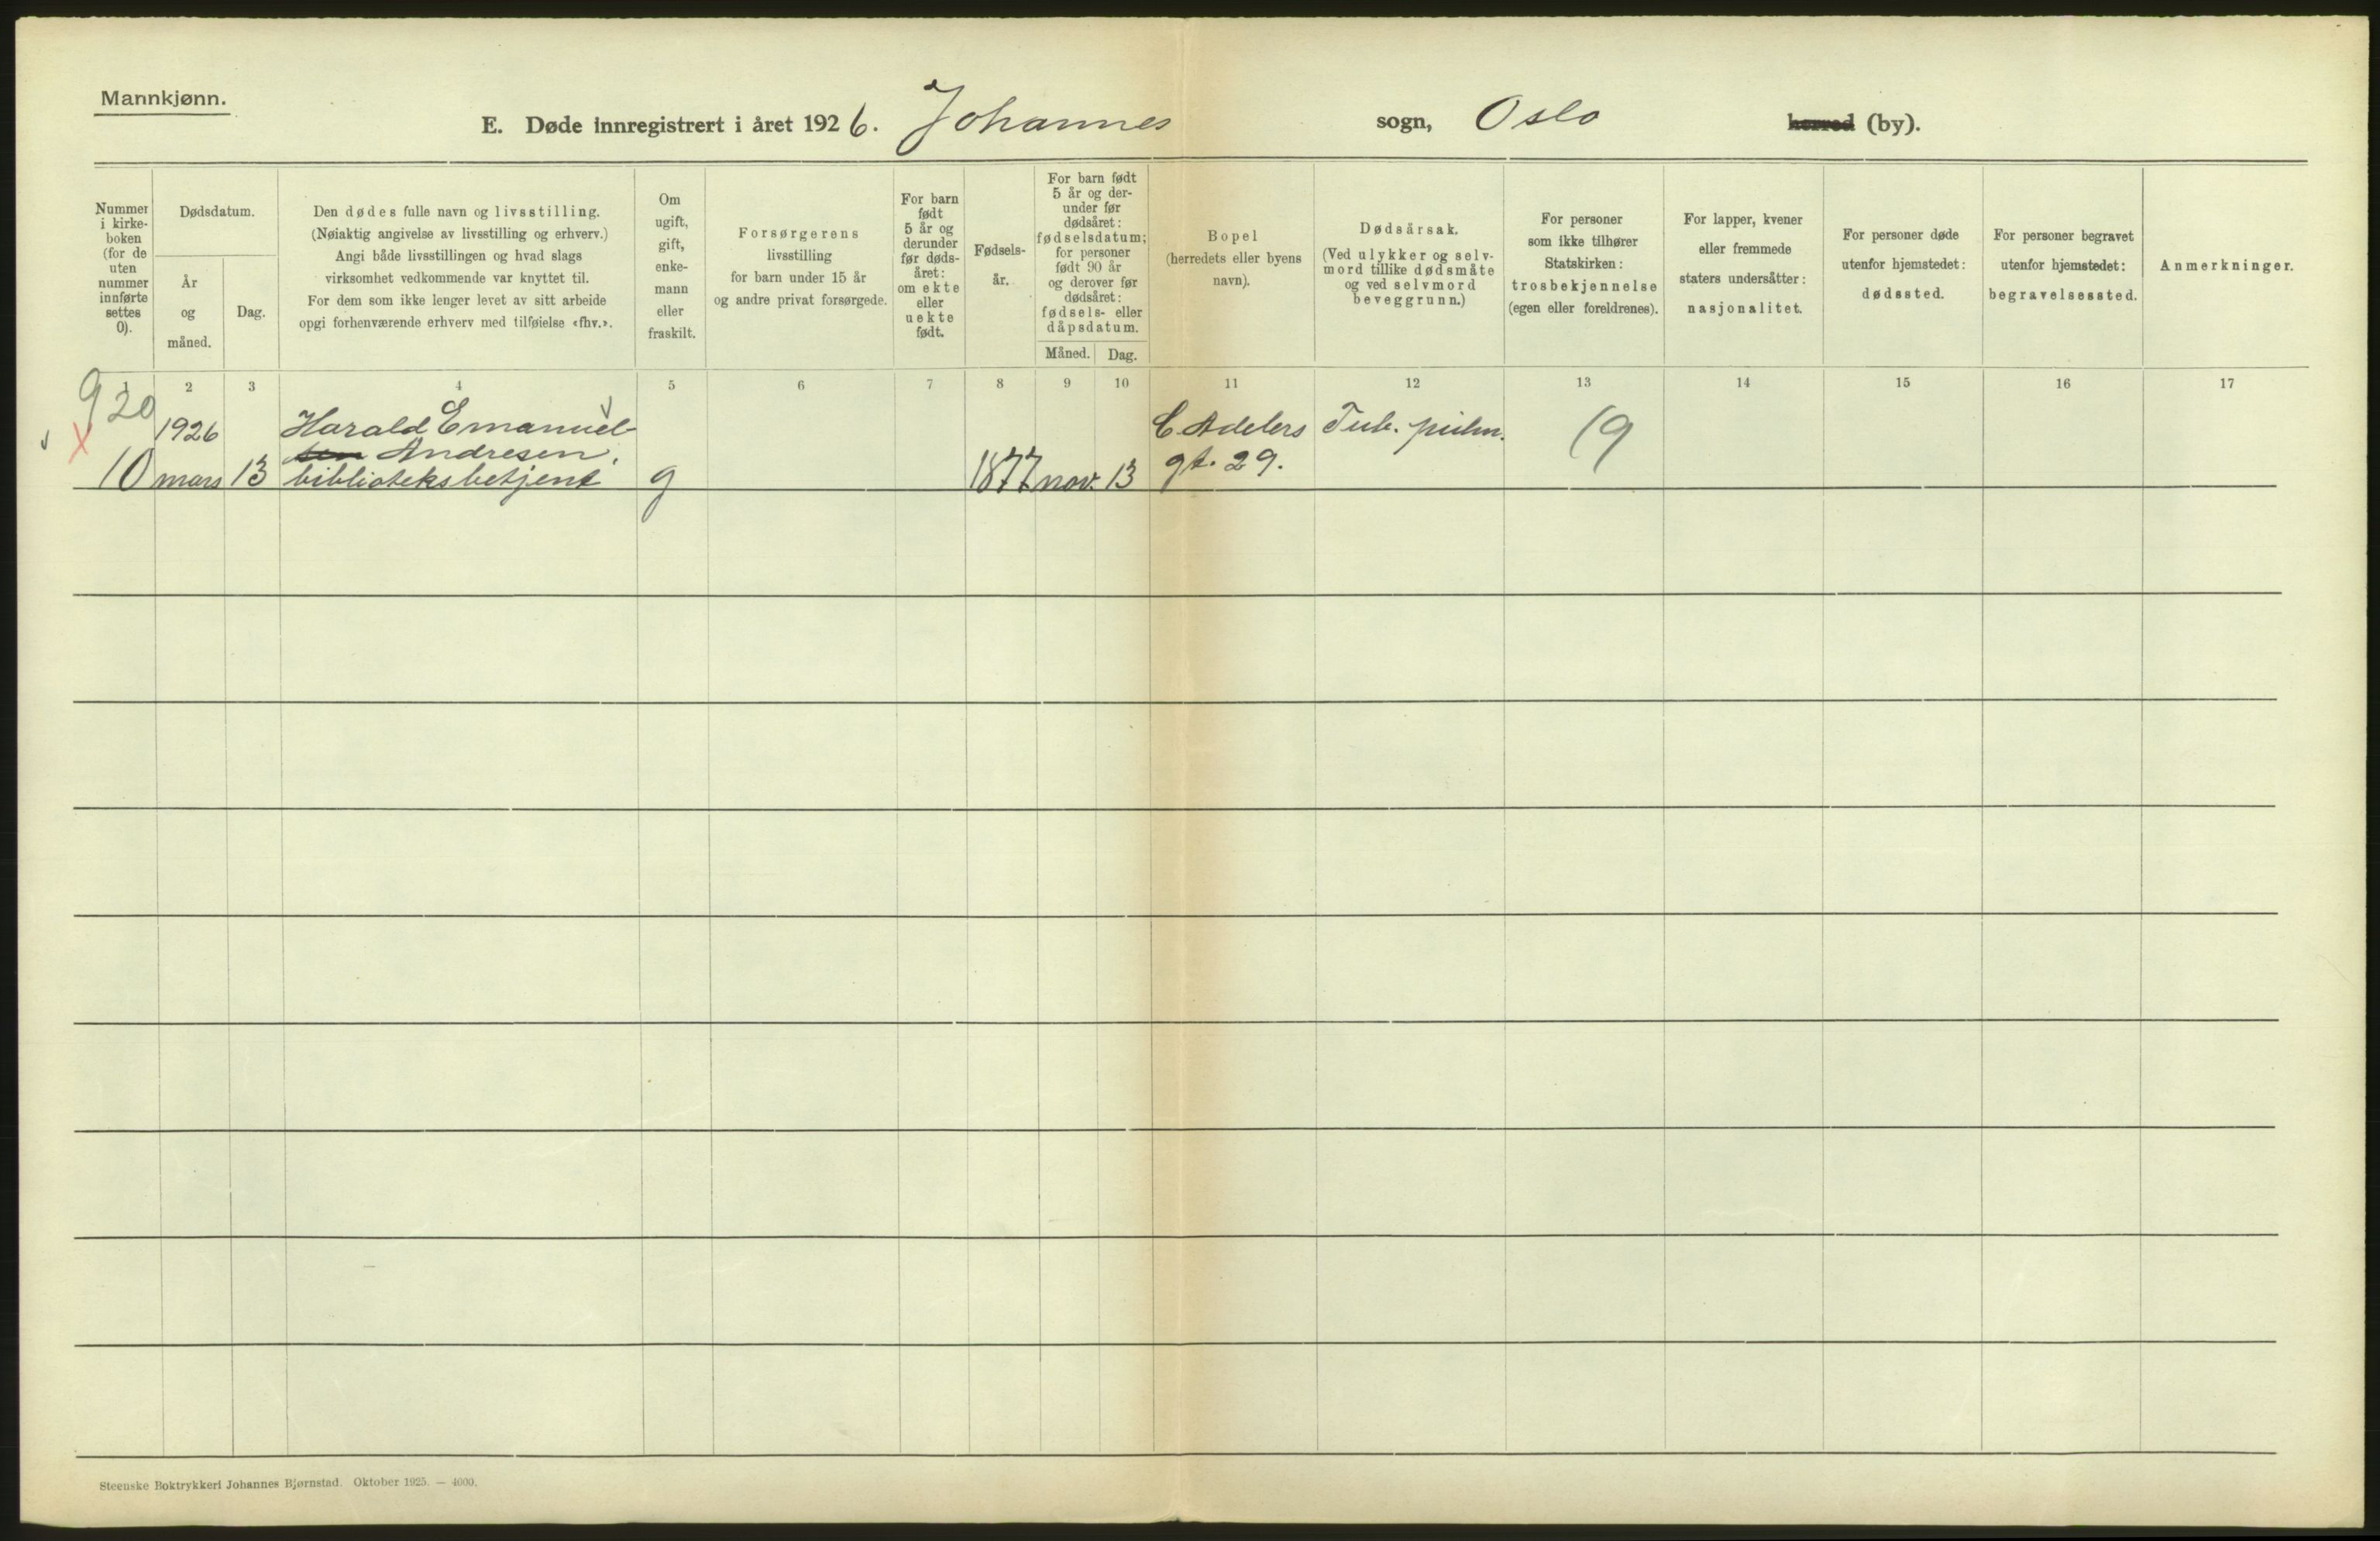 Mannkjønn.
E. Døde innregistrert i året 1926. Johannes sogn, Oslo herred (by).
Nummer i kirke-boken (for de uten nummer innførte settes 0).
Dødsdatum.
År og måned.
Dag.
Den dødes fulle navn og livsstilling.
(Nøiaktig angivelse av livsstilling og erhverv.)
Angi både livsstillingen og hvad slags
virksomhet vedkommende var knyttet til.
For dem som ikke lenger levet av sitt arbeide
opgi forhenværende erhverv med tilføielse «fhv.».
Om
ugift,
gift,
enke-
mann
eller
fraskilt.
Forsørgerens
livsstilling
for barn under 15 år
og andre privat forsørgede.
For barn
født
5 år og
derunder
før døds-
året:
om ekte
eller
uekte
født.
Fødsels-
år.
For barn født
5 år og der-
under før
dødsåret:
fødselsdatum;
for personer
født 90 år
og derover før
dødsåret:
fødsels- eller
dåpsdatum.
Måned. Dag.
Bopel
(herredets eller byens
navn).
Dødsårsak.
(Ved ulykker og selv-
mord tillike dødsmåte
og ved selvmord
beveggrunn.)
For personer
som ikke tilhører
Statskirken:
trosbekjennelse
(egen eller foreldrenes).
For lapper, kvener
eller fremmede
staters undersåtter:
nasjonalitet.
For personer døde
utenfor hjemstedet:
dødssted.
For personer begravet
utenfor hjemstedet:
begravelsessted.
Anmerkninger.
1 2 3 4 5 6 7 8 9 10 11 12 13 14 15 16 17
920
1926 Harald Emanuel C. Adelers Tub. pulm. 19
sen Andresen,
10 mars 13 biblioteksbetjent g 1877 nov. 13 gt. 29.
Steenske Boktrykkeri Johannes Bjørnstad. Oktober 1925. — 4000.